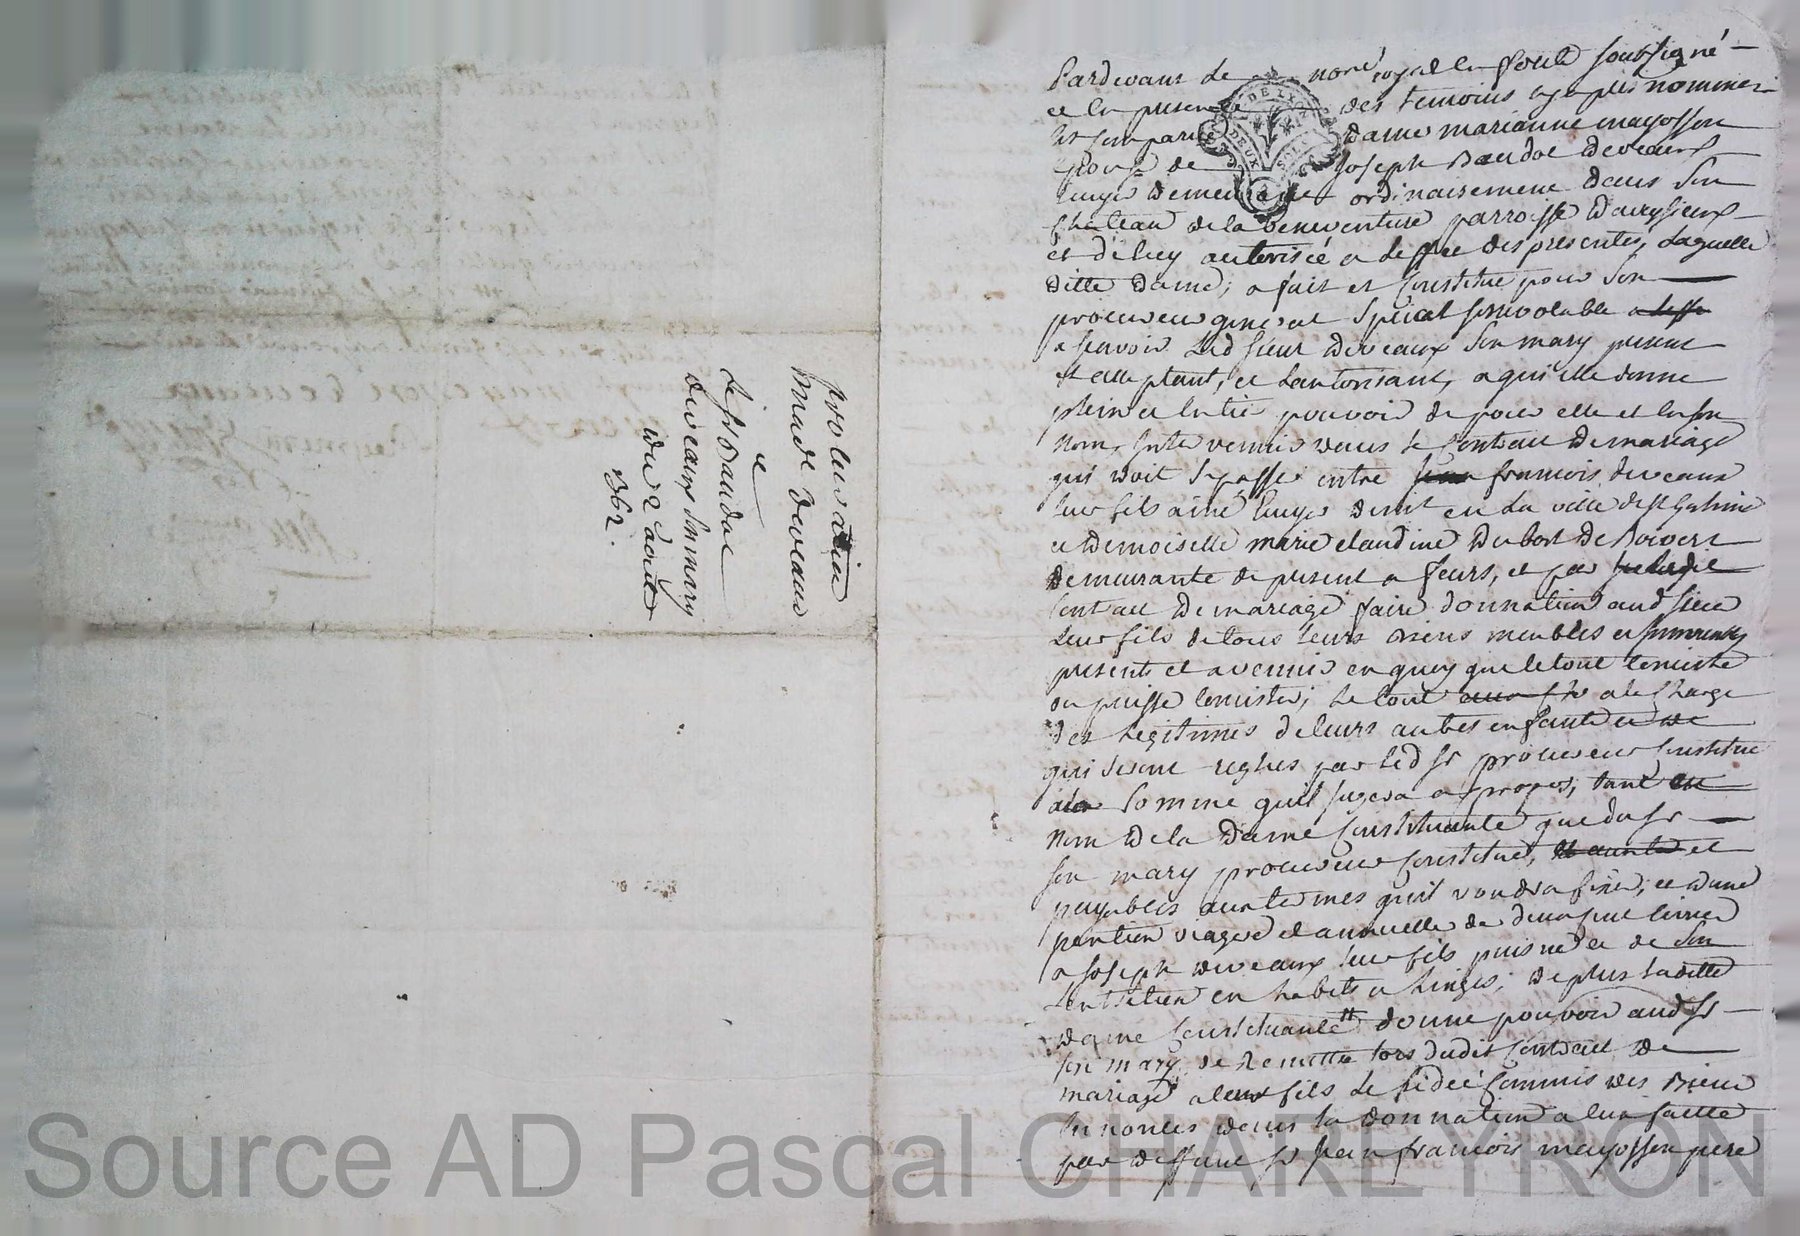 procuration
made deveaux
a
Le Sr Baudot
deveaux son mary
du 2 aout
362.
Pardevant Le nore royal en forest soubsigné
et En presence des temoins cy apres nommes
DE LYON
DEUX SOLS
Est comparue Dame marianne mayosson
Epouse de Joseph Baudot deveaux
Bourgeois demeurant ordinairement dans son
chateau de la beneventure parroisse daveysieux
et de luy autorisée a Leffet des presentes, Laquelle
ditte Dame, a fait et constitué pour son
procureur general special irrevocable a Leffe
a scavoir Led sieur deveaux son mary present
et acceptant, et Lautorisant, a qui elle donne
plein et entier pouvoir de pour elle et en son
nom, intervenir dans le contract de mariage
qui doit se passer entre francois deveaux
leur fils ainé Bourgeois demt en La ville de St Galmier
et demoiselle marie claudine Dubost de Boivert
demeurante de present a feurs, et par ledit
contract de mariage faire donnation aud sieur
Leur fils de tous leurs Biens meubles et immeubles
presents et avenir en quoy que le tout consiste
ou puisse consister; Le tout a la charge
des legitimes de leurs autres enfants et de
qui seront reglées par Led Sr procureur constitué
a la somme quil jugera a propos, tant au
nom de la dame constituante que du Sr
son mary procureur constitué, et
payables aux termes quil voudra fixer, et dune
pention viagere et annuelle de deux cent livres
a Joseph deveaux leur fils puisné et de son
Entretien en habits et Linges; de plus Laditte
dame constituante donne pouvoir aud Sr
son mary de Remettre lors dudit contract de
mariage a leur fils Le fideicommis des Biens
Enoncés dans la donnation a lui faitte
par deffunt Sr Jean francois mayosson pere
Source AD Pascal CHARLEYRON